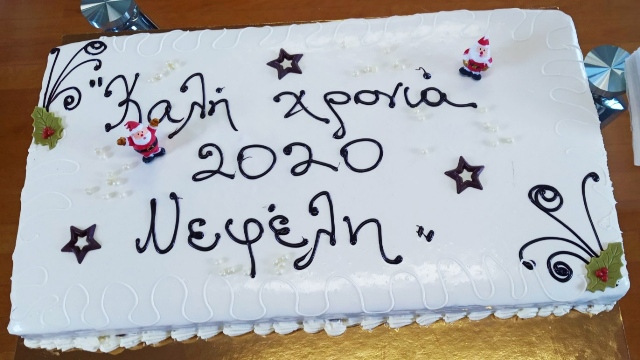 "Καλή χρονιά
2020
Νεφέλη"